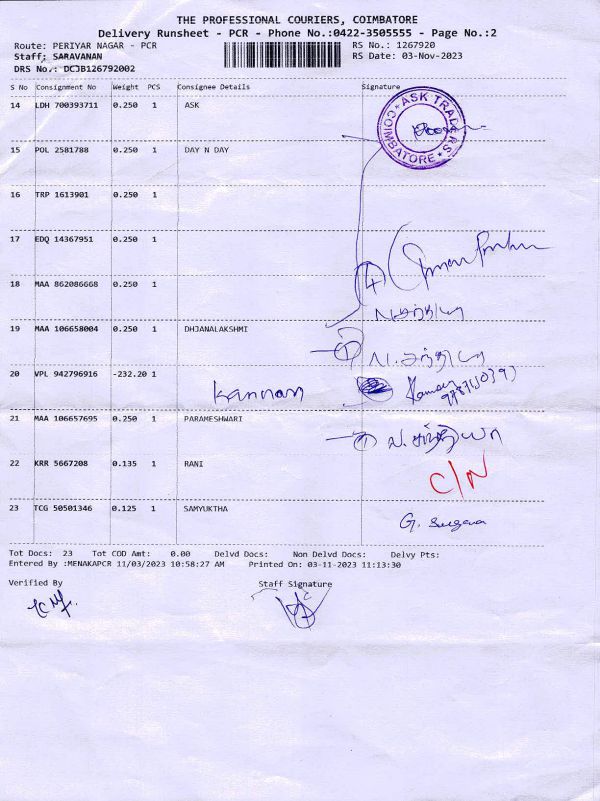 THE PROFESSIONAL COURIERS, COIMBATORE
Delivery Runsheet - PCR - Phone No.:0422-3505555 - Page No.:2
Route: PERIYAR NAGAR - PCR RS No.: 1267920
Staff: SARAVANAN RS Date: 03-Nov-2023
DRS No.: DCJB126792002
S No Consignment No Weight PCS Consignee Details Signature
14 LDH 700393711 0.250 1 ASK
ASK TRADERS COIMBATORE
15 POL 2581788 0.250 1 DAY N DAY
16 TRP 1613901 0.250 1
17 EDQ 14367951 0.250 1
18 MAA 862086668 0.250 1
19 MAA 106658004 0.250 1 DHJANALAKSHMI
20 VPL 942796916 -232.20 1 Kannan
21 MAA 106657695 0.250 1 PARAMESHWARI
22 KRR 5667208 0.135 1 RANI C/N
23 TCG 50501346 0.125 1 SAMYUKTHA
Tot Docs: 23 Tot COD Amt: 0.00 Delvd Docs: Non Delvd Docs: Delvy Pts:
Entered By :MENAKAPCR 11/03/2023 10:58:27 AM Printed On: 03-11-2023 11:13:30
Verified By Staff Signature